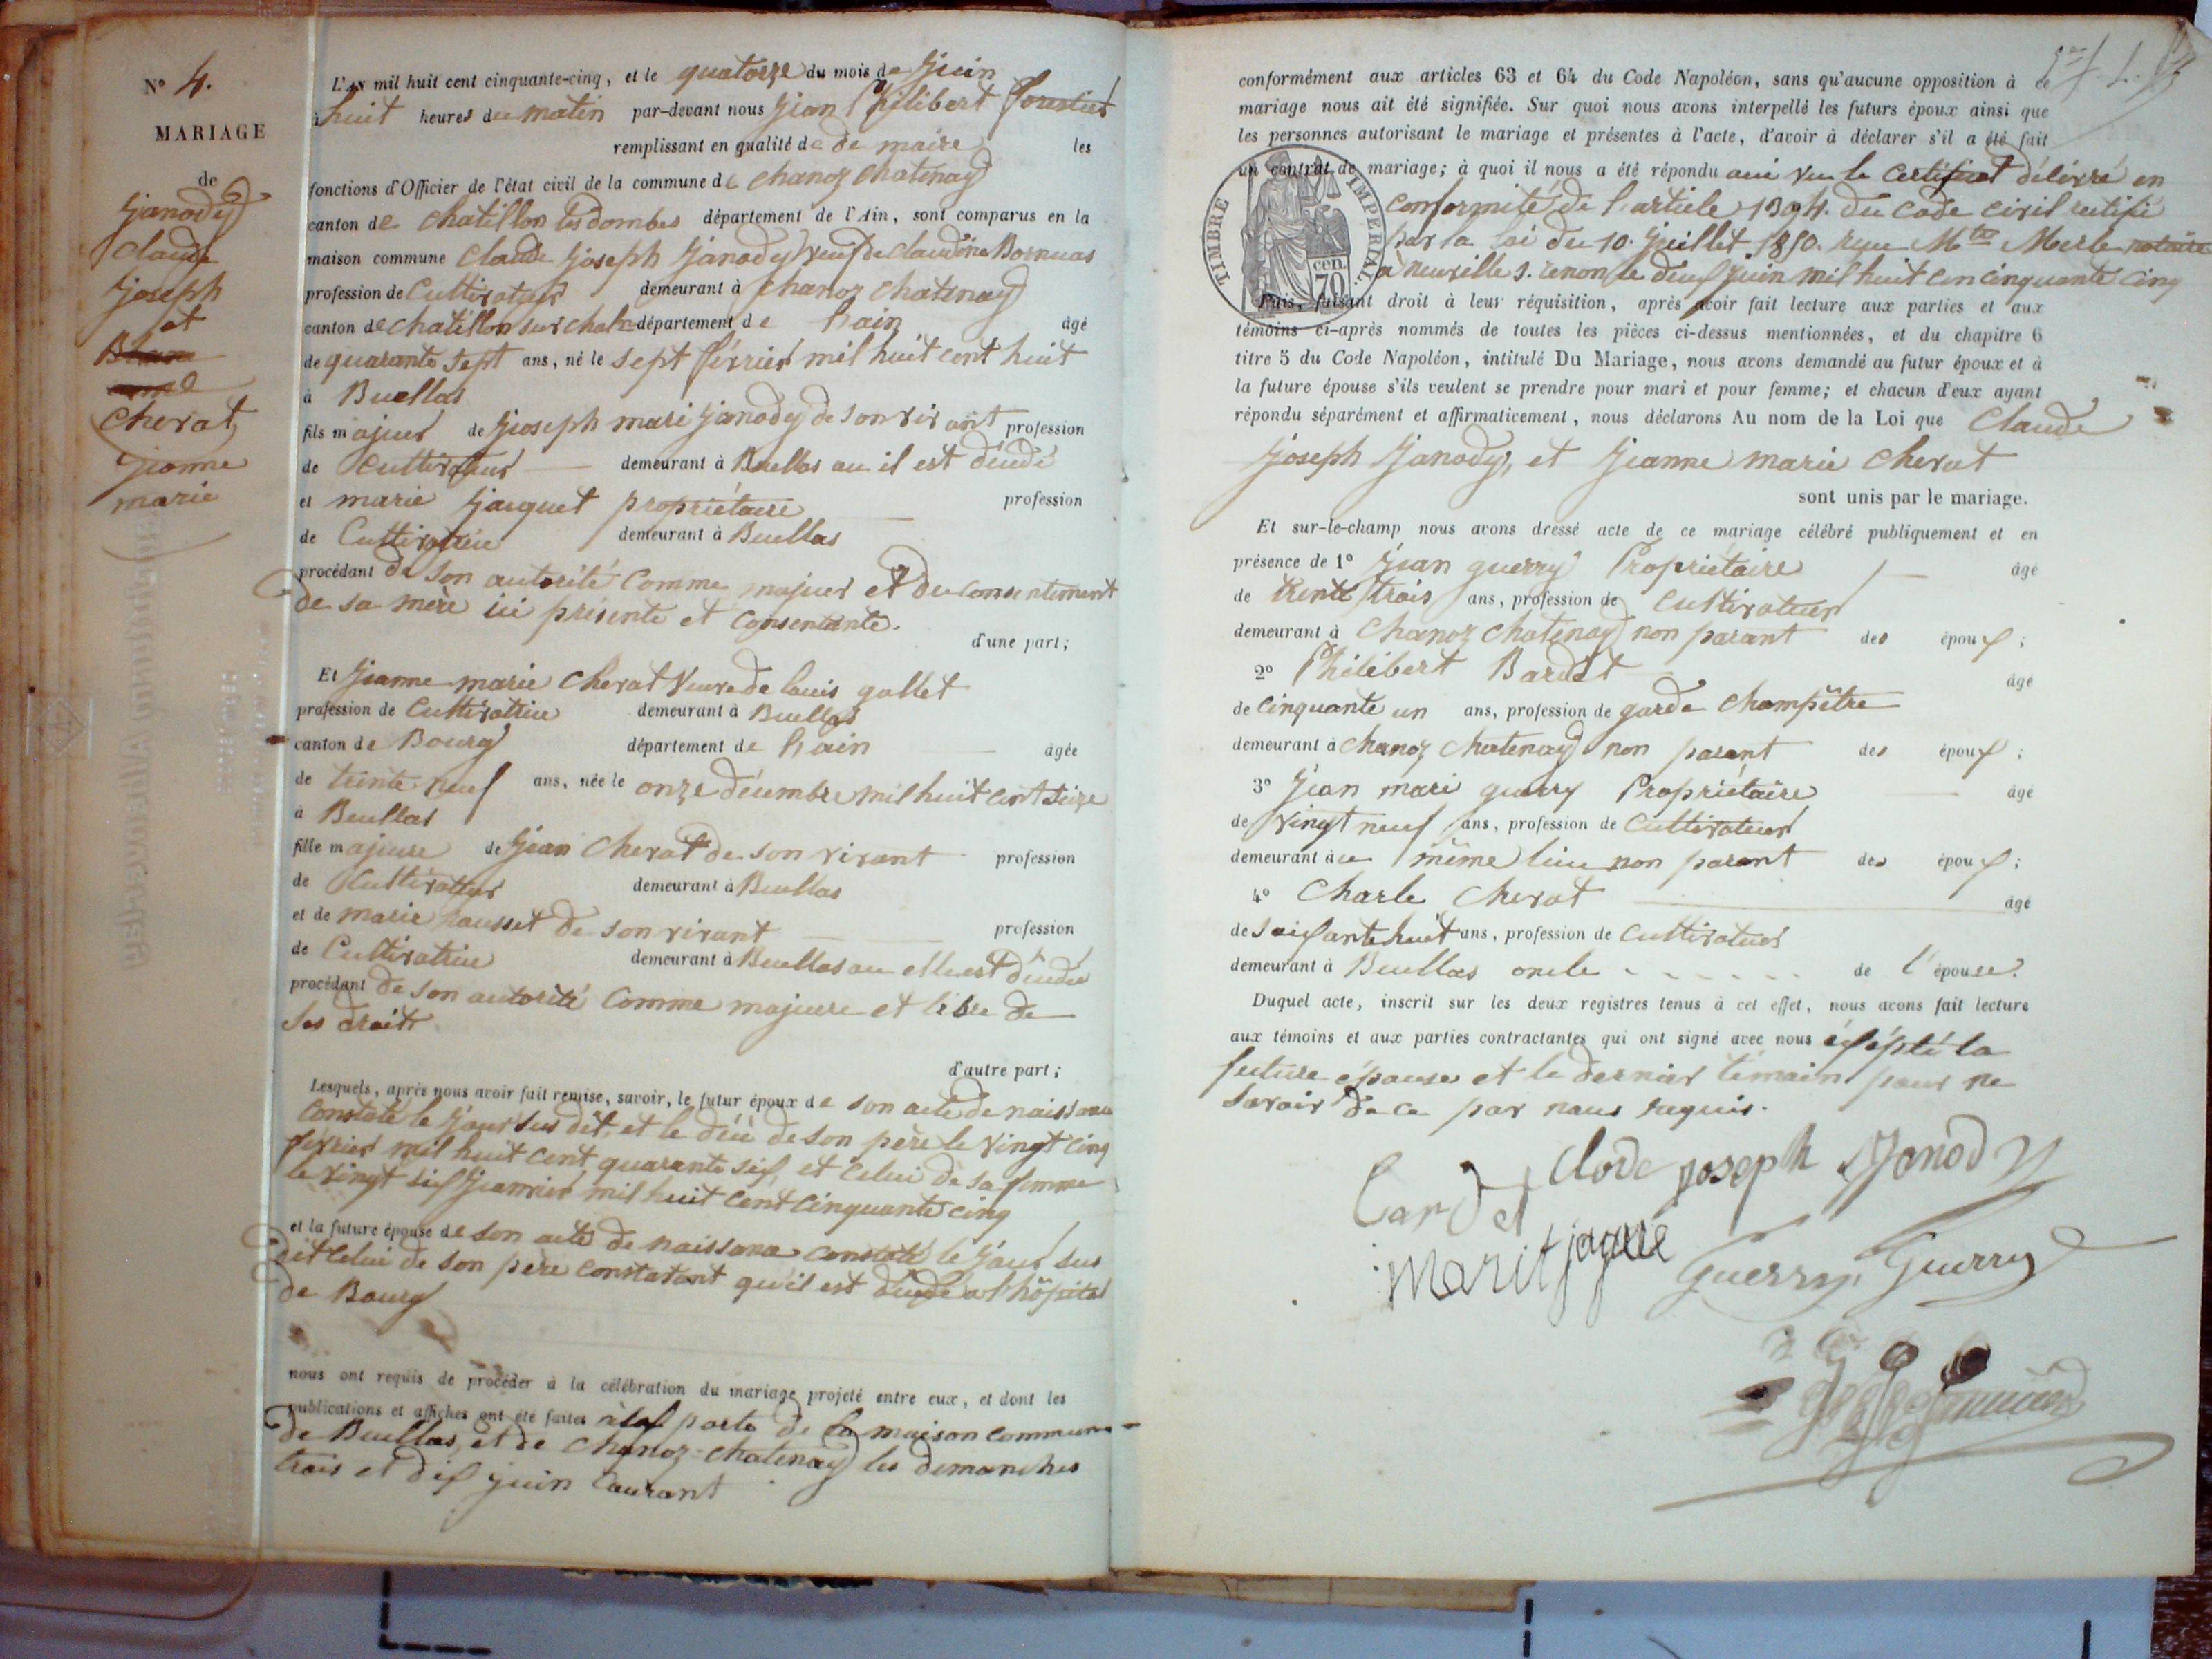 N° 4.
MARIAGE
de
Janody
Claude
Joseph
et
Cherat
Jeanne
marie
L'AN mil huit cent cinquante-cinq, et le quatorze du mois de Juin
à huit heures du matin par-devant nous Jean Philibert Forestier
remplissant en qualité de de maire les
fonctions d'Officier de l'état civil de la commune de Chanoz Chatenay
canton de Chatillon les dombes département de l'Ain, sont comparus en la
maison commune Claude Joseph Janody veuf de Claudine Bornuas
profession de Cultivateur demeurant à Chanoz Chatenay
canton de Chatillon sur chala département de l'ain âgé
de quarante sept ans, né le sept février mil huit cent huit
à Buellas
fils majeur de Joseph mari Janody de son vivant profession
de Cultivateur demeurant à Buellas au il est décédé
et marie Jacquet propriétaire profession
de Cultivatrice demeurant à Buellas
procédant de son autorité comme majeur et du consentement
de sa mère ici présente et consentante.
d'une part;
Et Jeanne marie Cherat Veuve de louis gallet
profession de Cultivatrice demeurant à Buellas
canton de Bourg département de l'ain âgée
de trente neuf ans, née le onze décembre mil huit cent seize
à Buellas
fille majeure de Jean Cherat de son vivant profession
de Cultivateur demeurant à Buellas
et de marie rousset de son vivant profession
de Cultivatrice demeurant à Buellas au elle est décédée
procédant de son autorité comme majeure et libre de
ses droits
d'autre part;
Lesquels, après nous avoir fait remise, savoir, le futur époux de son acte de naissance
constaté le jour sus dit, et le décè de son père le vingt cinq
février mil huit cent quarante six et celui de sa femme
le vingt six Janvier mil huit cent cinquante cinq
et la future épouse de son acte de naissance constaté le jour sus
dit celui de son père constatant qu'il est décédé a l'hôpital
de Bourg
nous ont requis de procéder à la célébration du mariage projeté entre eux, et dont les
publications et affiches ont été faites à la porte de la maison commune
de Buellas, et de Chanoz-Chatenay les dimanches
trois et dix juin Courant
conformément aux articles 63 et 64 du Code Napoléon, sans qu'aucune opposition à ce
mariage nous ait été signifiée. Sur quoi nous avons interpellé les futurs époux ainsi que
les personnes autorisant le mariage et présentes à l'acte, d'avoir à déclarer s'il a été fait
un contrat de mariage; à quoi il nous a été répondu oui vu le certificat délivré en
conformité de l'article 1394 du code civil rectifié
par la loi du 10. Juillet 1850. reçu Mtre Merle notaire
à neuville s. renon le deux juin mil huit cen cinquante cinq
TIMBRE IMPERIAL.
70 cen.
Puis, faisant droit à leur réquisition, après avoir fait lecture aux parties et aux
témoins ci-après nommés de toutes les pièces ci-dessus mentionnées, et du chapitre 6
titre 5 du Code Napoléon, intitulé Du Mariage, nous avons demandé au futur époux et à
la future épouse s'ils veulent se prendre pour mari et pour femme; et chacun d'eux ayant
répondu séparément et affirmativement, nous déclarons Au nom de la Loi que Claude
Joseph Janody, et Jeanne marie Cherat
sont unis par le mariage.
Et sur-le-champ nous avons dressé acte de ce mariage célébré publiquement et en
présence de 1° Jean guerry Propriétaire âgé
de trente trois ans, profession de Cultivateur
demeurant à Chanoz Chatenay non parant des époux;
2° Philibert Bardet âgé
de cinquante un ans, profession de garde Champêtre
demeurant à Chanoz Chatenay non parent des époux;
3° Jean mari guerry Propriétaire âgé
de vingt neuf ans, profession de Cultivateur
demeurant à ce même lieu non parent des époux;
4° Charle Cherat âgé
de soixante huit ans, profession de Cultivateur
demeurant à Buellas oncle de l'épouse.
Duquel acte, inscrit sur les deux registres tenus à cet effet, nous avons fait lecture
aux témoins et aux parties contractantes qui ont signé avec nous éxépté la
future épouse et le dernier témain pour ne
savoir de ce par nous requis.
Clode joseph Janody
Bardet
Marit jaquee
Guerry. Guerry